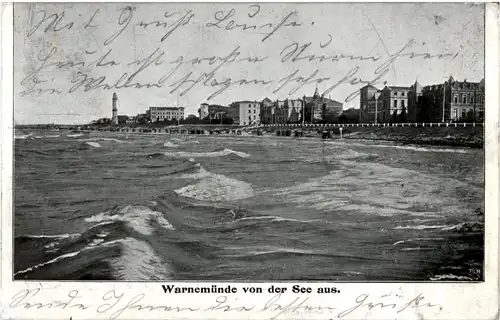 Mit Gruß Louise.
Heute ist großer Sturm hier
die Wellen schlagen sehr hoch.
Warnemünde von der See aus.
Sende Ihnen die besten Grüße.